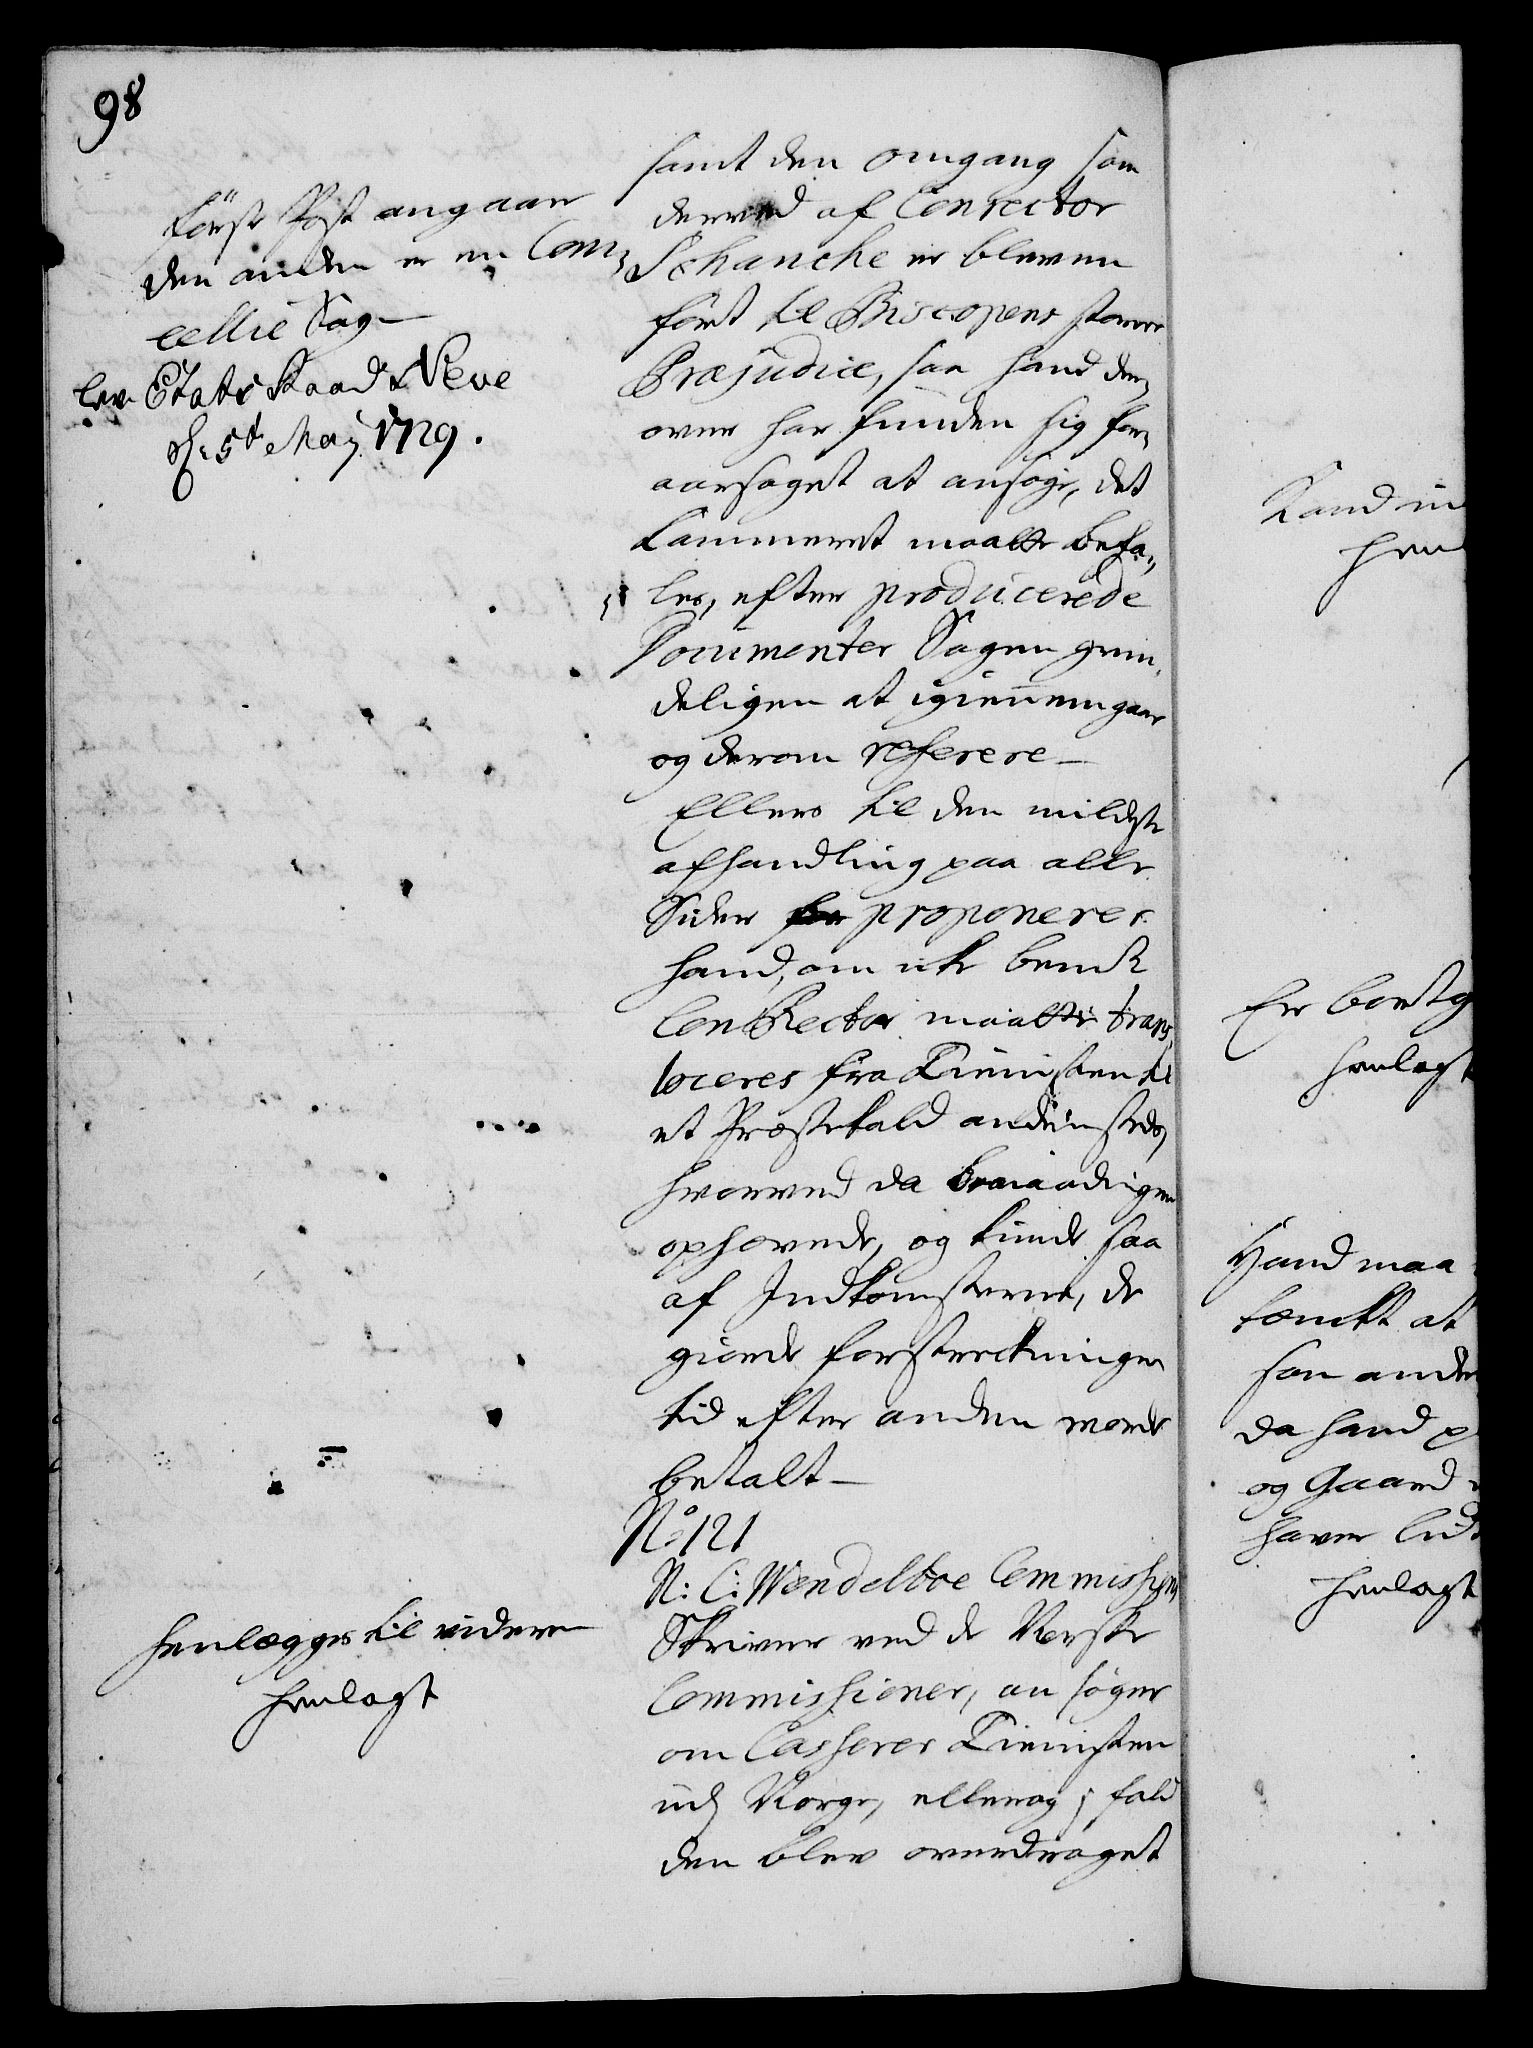 98
første Post angaar
den anden er en Can¬
cellie Sag
lev. Etats Raad Neve
d: 5t Maj 1729.
henlegges til videre
henlagt
samt den omgang som
derved af Conrector
Schanche er bleven
ført til Biscopens store
Præjudice, saa hand der¬
over har funden sig for¬
aarsaget at ansøge, det
Cammeret maatte befa¬
les, efter producerede
Documenter Sagen grun¬
deligen at igiennemgaae
og derom referere
Ellers til den mildeste
afhandling paa alle
Sider proponerer
hand, om ike bemte
ConRector maatte trans¬
loceres fra Tienisten til
et Præstekald andensteds,
hvorved da
ophævede, og kunde saa
af Indkomsterne, de
giorde forsterckninger
tid efter anden worde
betalt
No 121
N: C: Wendelboe Commissions
Skriver ved de Norske
Commissioner, an søger
om Casserer Tienisten
udj Norge, eller og j fald
den blev overdraget
Kand in
hen
Er bortg
henlagt
Hand maa
tænckt at
saa ander
da hand p
og Gaard
haver lid
henlagt